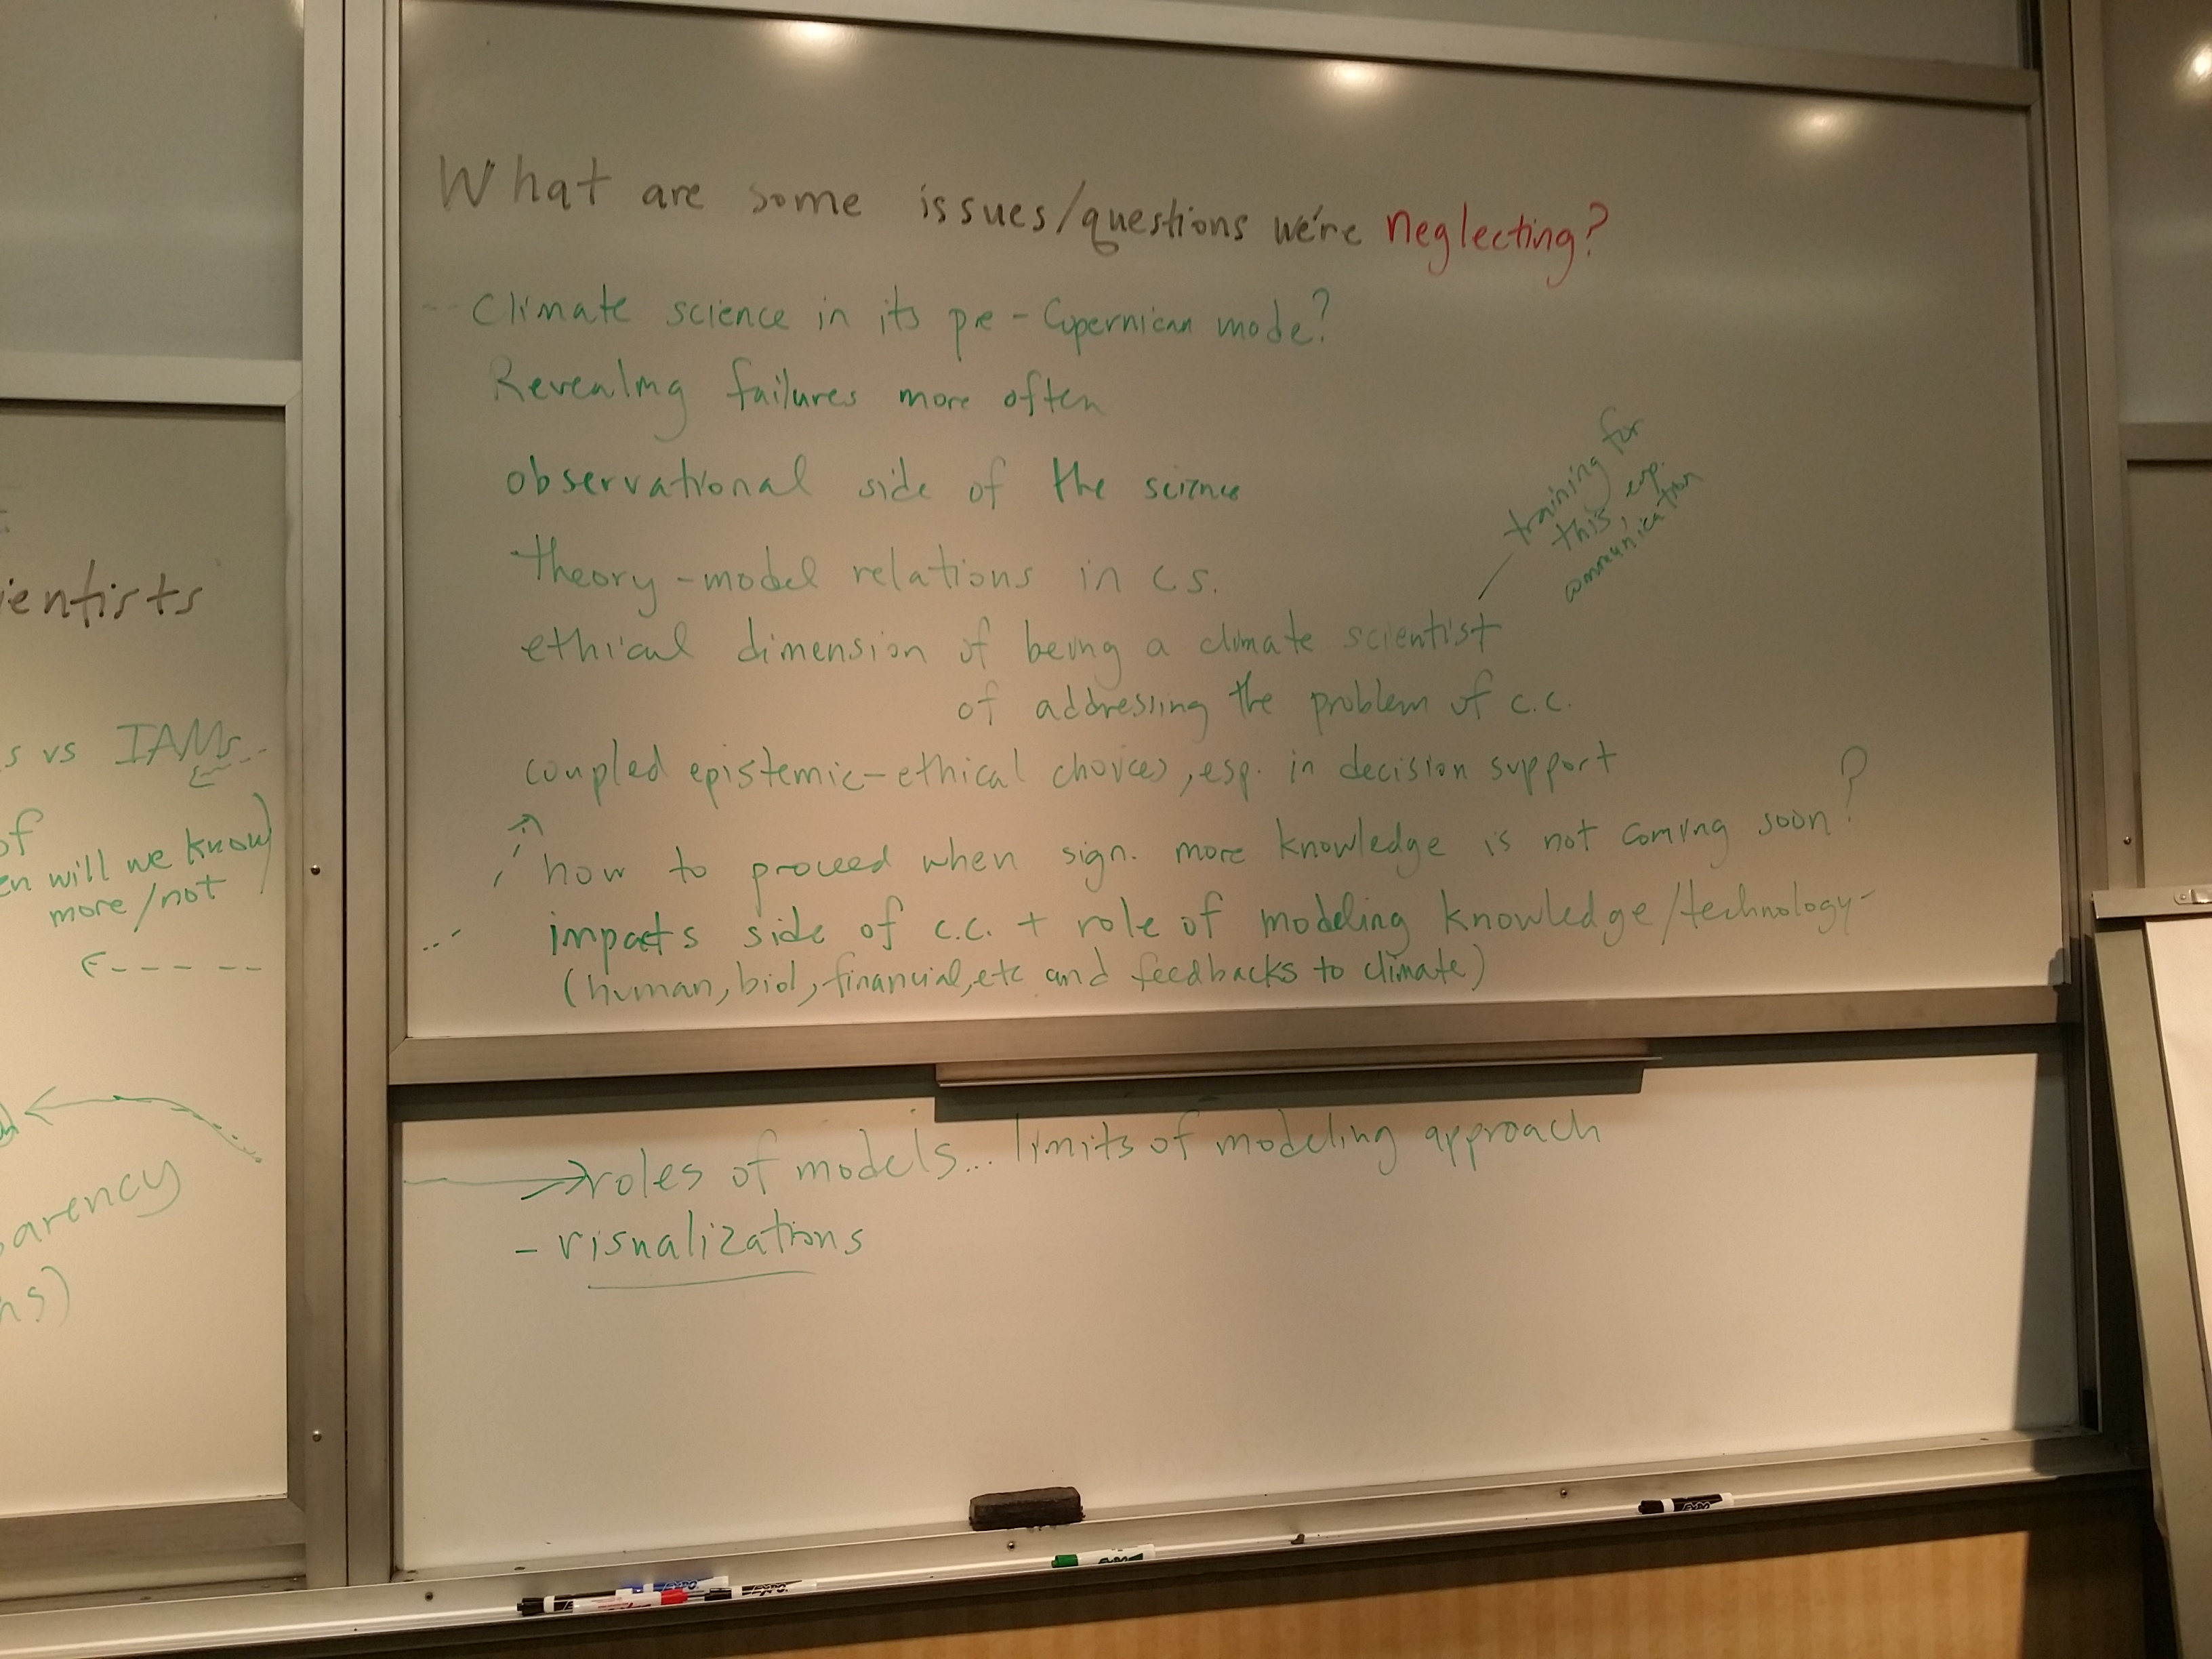 What are some issues/questions we're neglecting?
-- Climate science in its pre-Copernican mode?
Revealing failures more often
observational side of the science
theory-model relations in cs.
training for
this, esp.
communication
ethical dimension of being a climate scientist
of addressing the problem of c.c.
coupled epistemic-ethical choices, esp. in decision support
how to proceed when sign. more knowledge is not coming soon?
impacts side of c.c. + role of modeling knowledge/technology-
(human, biol, financial, etc and feedbacks to climate)
roles of models... limits of modeling approach
- visualizations
ientists
s vs IAMs
of
en will we know)
more/not
arency
ns)
EXPO
EXPO
EXPO
EXPO